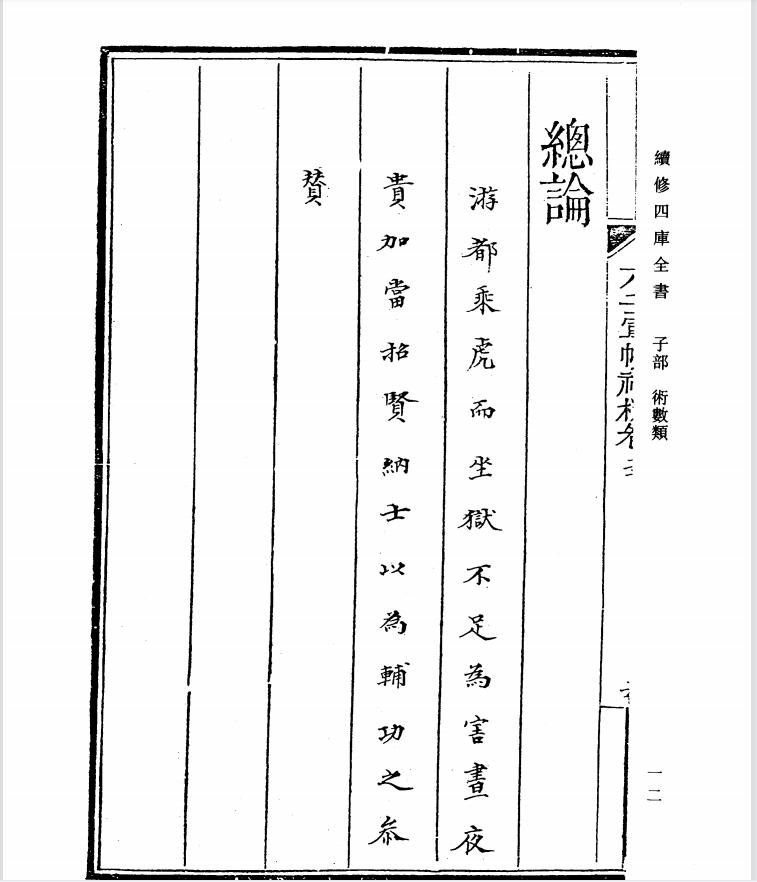 續修四庫全書 子部 術數類
一二
總論
游都乘虎而坐獄不足為害晝夜
貴加當招賢納士以為輔功之叅
賛